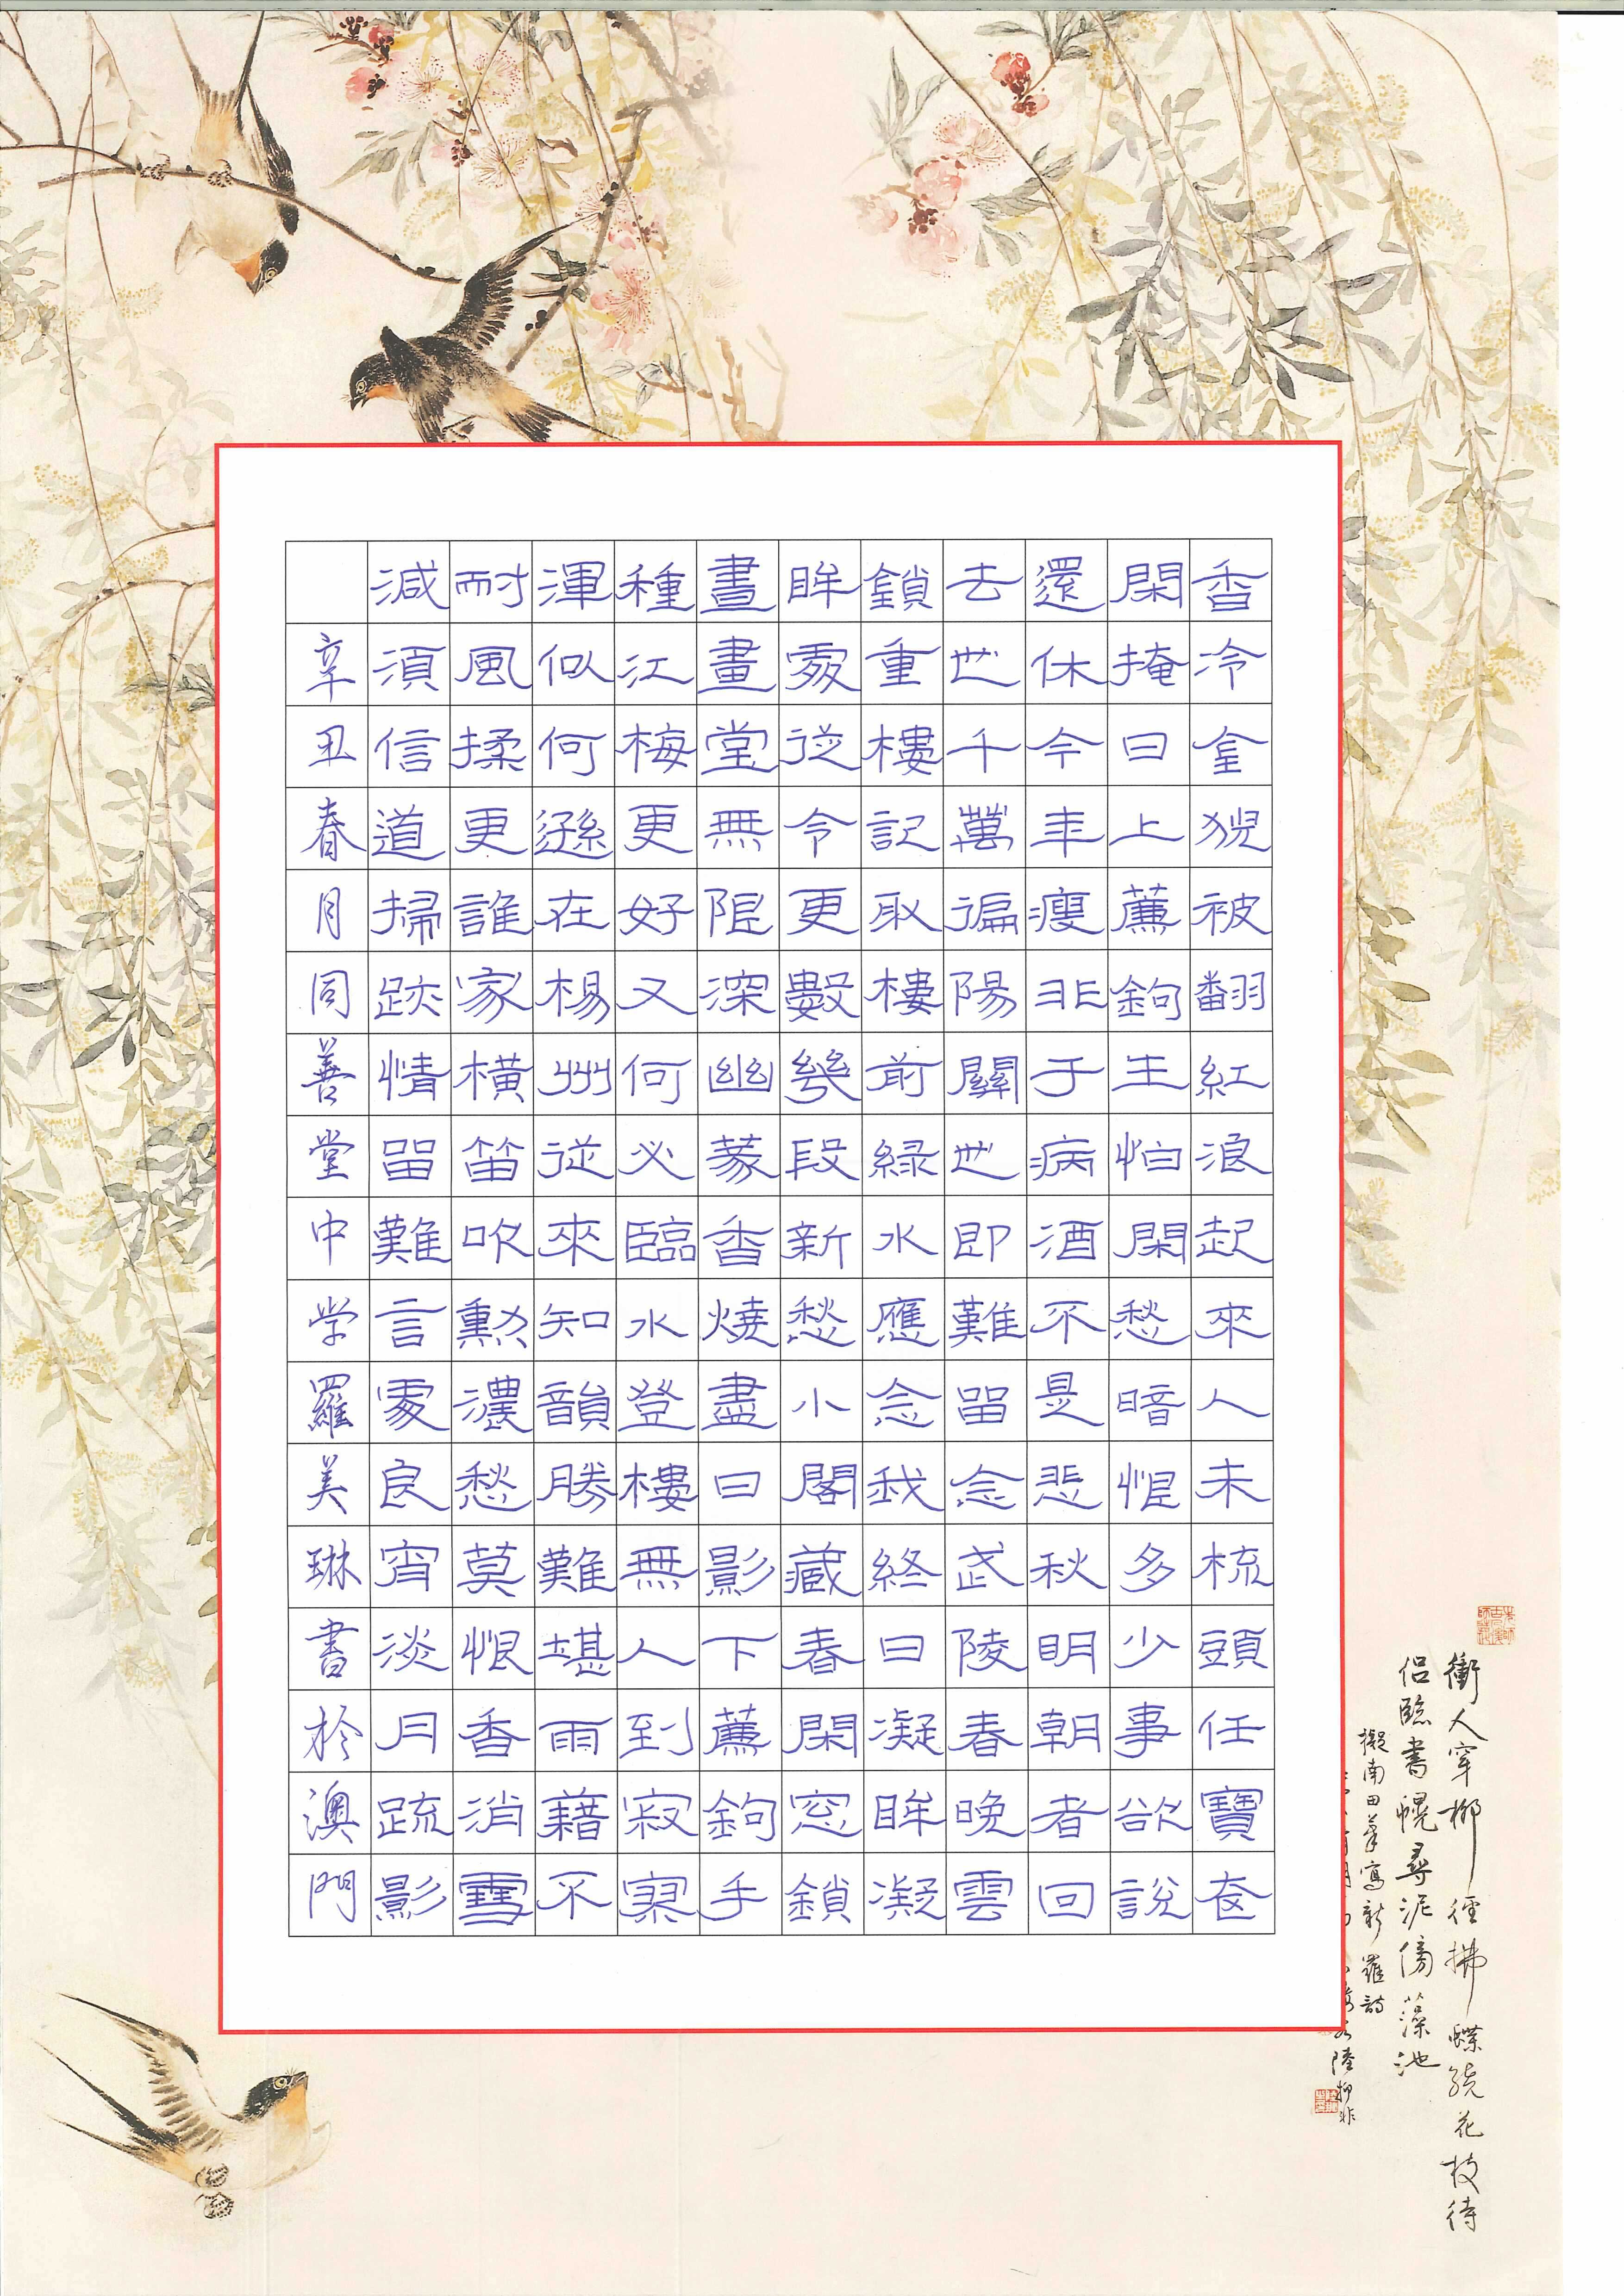 香冷金猊被翻紅浪起來人未梳頭任寶奩
閑掩日上簾鉤生怕閑愁暗恨多少事欲說
還休今年瘦非于病酒不是悲秋明朝者回
去也千萬遍陽關也即難留念武陵春晚雲
鎖重樓記取樓前綠水應念我終日凝眸凝
眸處從今更數幾段新愁小閣藏春閑窓鎖
晝畫堂無限深幽篆香燒盡日影下簾鉤手
種江梅更好又何必臨水登樓無人到寂寥
渾似何遜在楊州從來知韻勝難堪雨藉不
耐風揉更誰家橫笛吹動濃愁莫恨香消雪
減須信道掃跡情留難言處良宵淡月疏影
辛丑春月同善堂中学羅美琳書於澳門
衝人穿柳徑拂蝶繞花枝待
侶臨書幌尋泥傍藻池
擬南田筆寫新羅詩
陸抑非